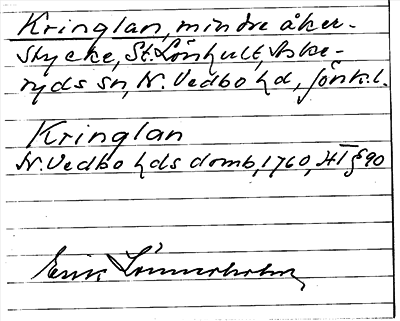 Kringlan, mindre åker-
stycke, St. Lönhult, Aske-
ryds sn, N. Vedbo hd, Jönk.l.
Kringlan
N. Vedbo hds domb, 1760, HT § 90
Erik Linnerholm